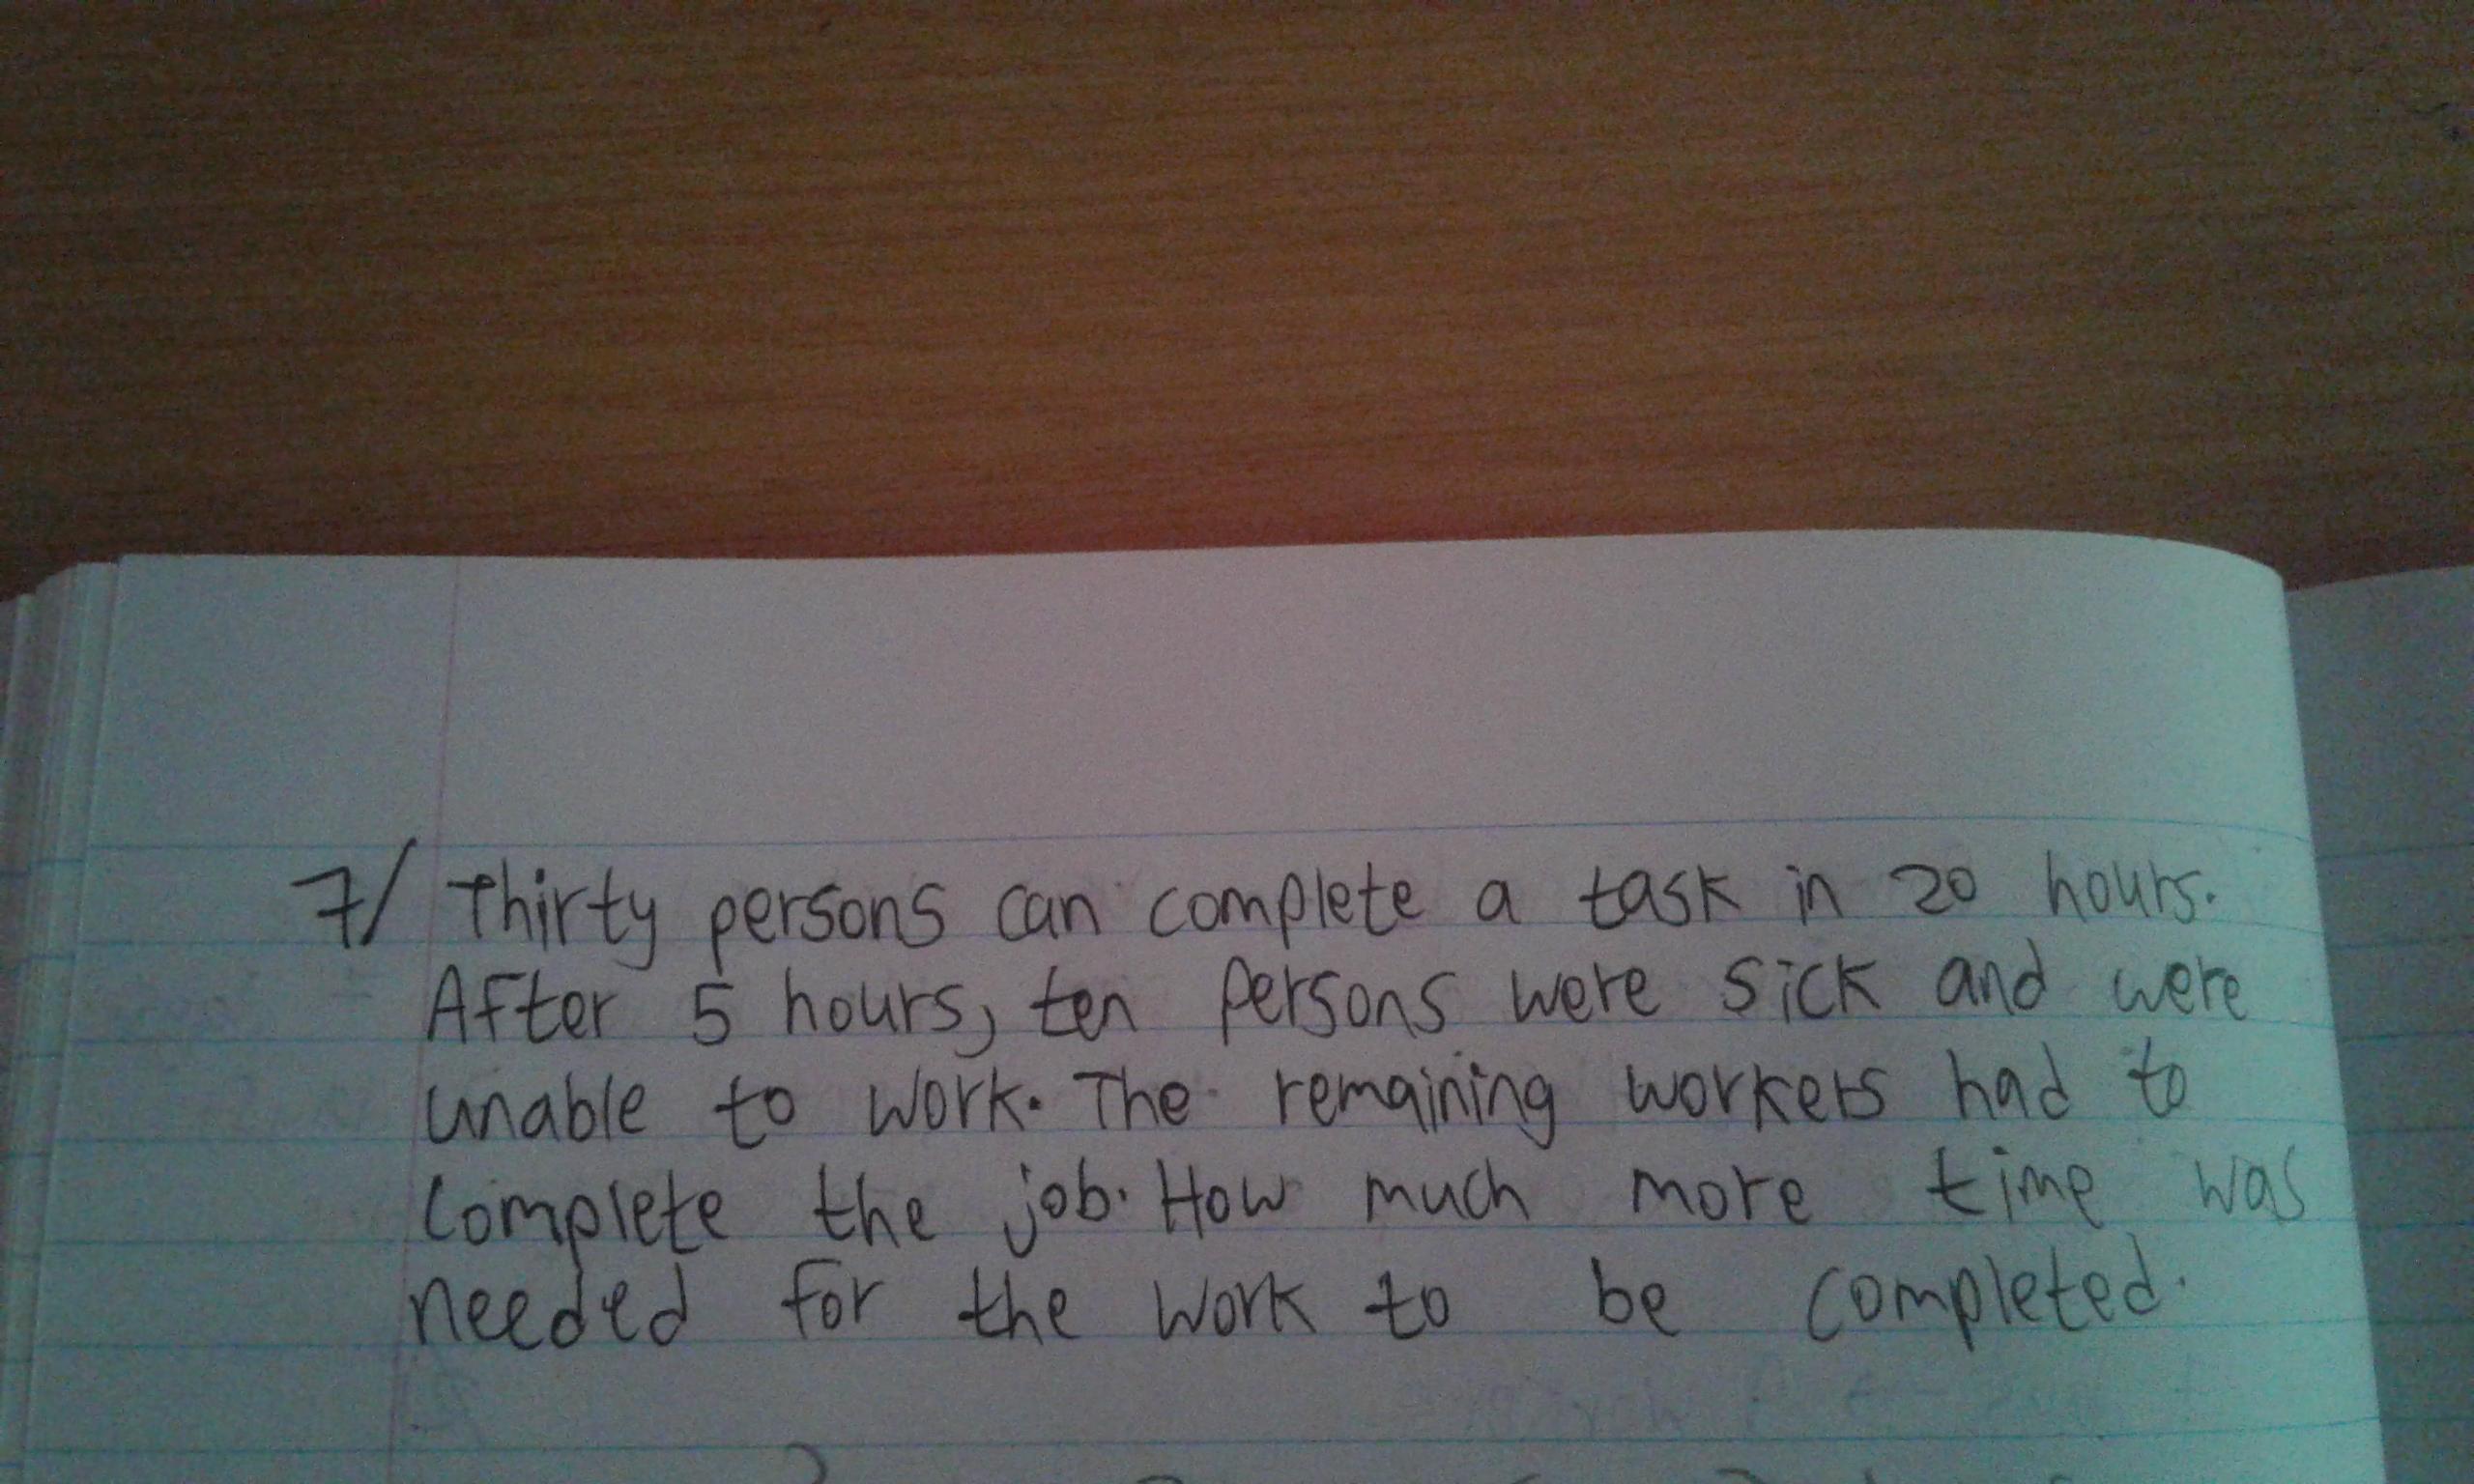 7/ Thirty persons can complete a task in 20 hours.
After 5 hours, ten persons were sick and were
unable to work. The remaining workers had to
complete the job. How much more time was
needed for the work to be completed.